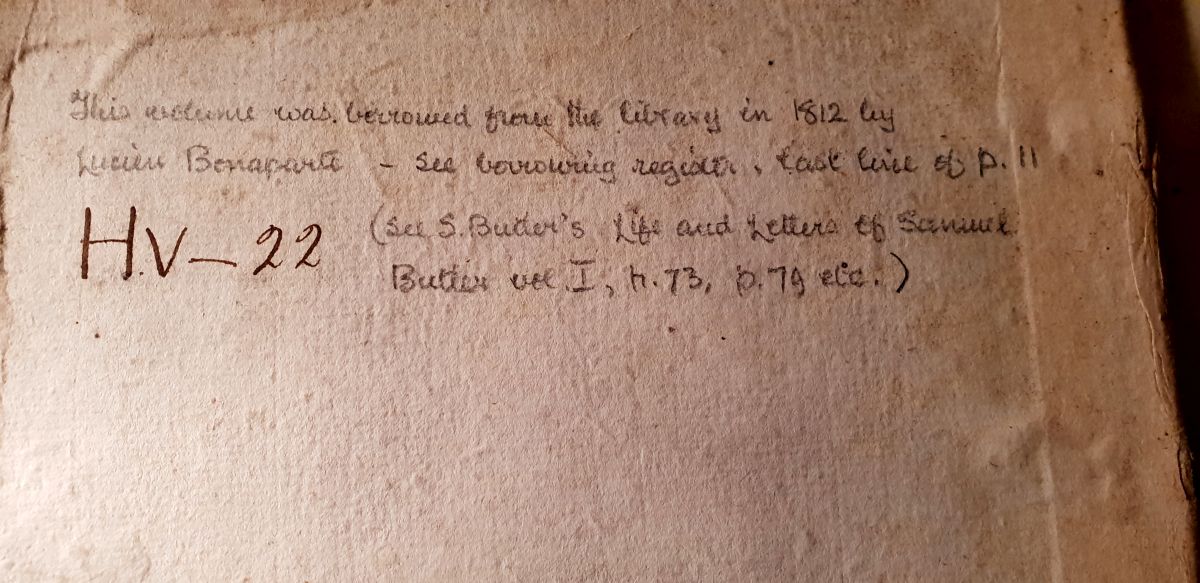 This volume was borrowed from the library in 1812 by
Lucien Bonaparte - See borrowing register, last line of p. 11
H.V-22
(See S. Butler's Life and Letters of Samuel
Butler vol. I, p. 73, p. 79 etc.)